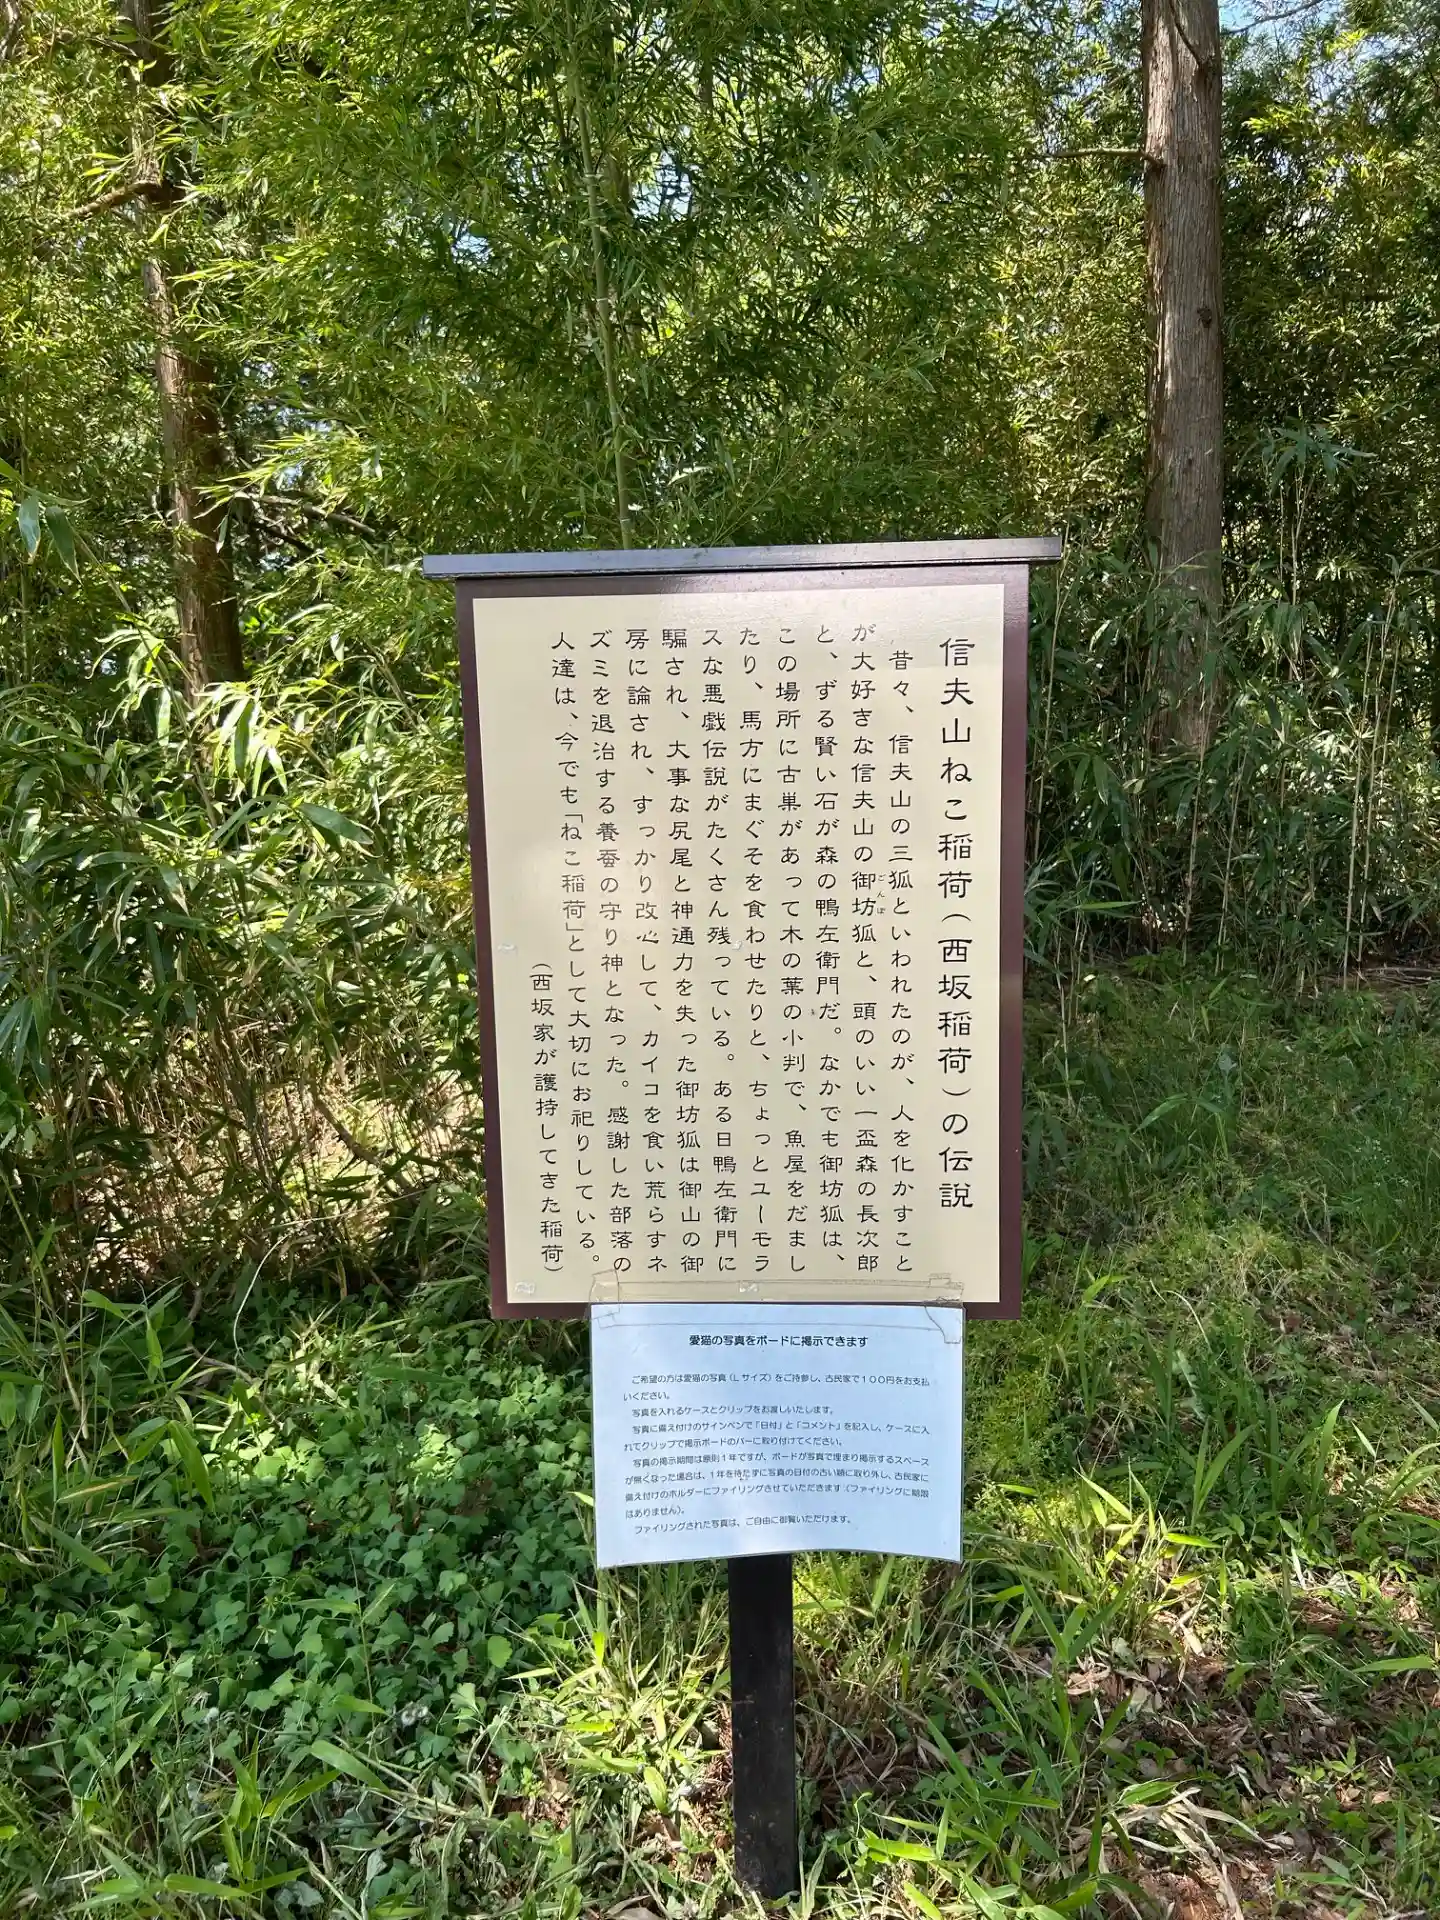 信夫山ねこ稲荷(西坂稲荷)の伝説
昔々、信夫山の三狐といわれたのが、人を化かすこと
が大好きな信夫山の御坊狐と、頭のいい一盃森の長次郎
ごんぼ
と、ずる賢い石が森の鴨左衛門だ。なかでも御坊狐は、
この場所に古巣があって木の葉の小判で、魚屋をだまし
たり、馬方にまぐそを食わせたりと、ちょっとユーモラ
スな悪戯伝説がたくさん残っている。ある日鴨左衛門に
騙され、大事な尻尾と神通力を失った御坊狐は御山の御
房に諭され、すっかり改心して、カイコを食い荒らすネ
ズミを退治する養蚕の守り神となった。感謝した部落の
人達は、今でも「ねこ稲荷」として大切にお祀りしている。
(西坂家が護持してきた稲荷)
愛猫の写真をボードに掲示できます
ご希望の方は愛猫の写真(Lサイズ)をご持参し、古民家で100円をお支払
いください。
写真を入れるケースとクリップをお渡しいたします。
写真に備え付けのサインペンで「日付」と「コメント」を記入し、ケースに入
れてクリップで掲示ボードのバーに取り付けてください。
写真の掲示期間は原則1年ですが、ボードが写真で埋まり掲示するスペース
が無くなった場合は、1年を待たずに写真の日付の古い順に取り外し、古民家に
備え付けのホルダーにファイリングさせていただきます(ファイリングに期限
はありません)。
ファイリングされた写真は、ご自由に御覧いただけます。